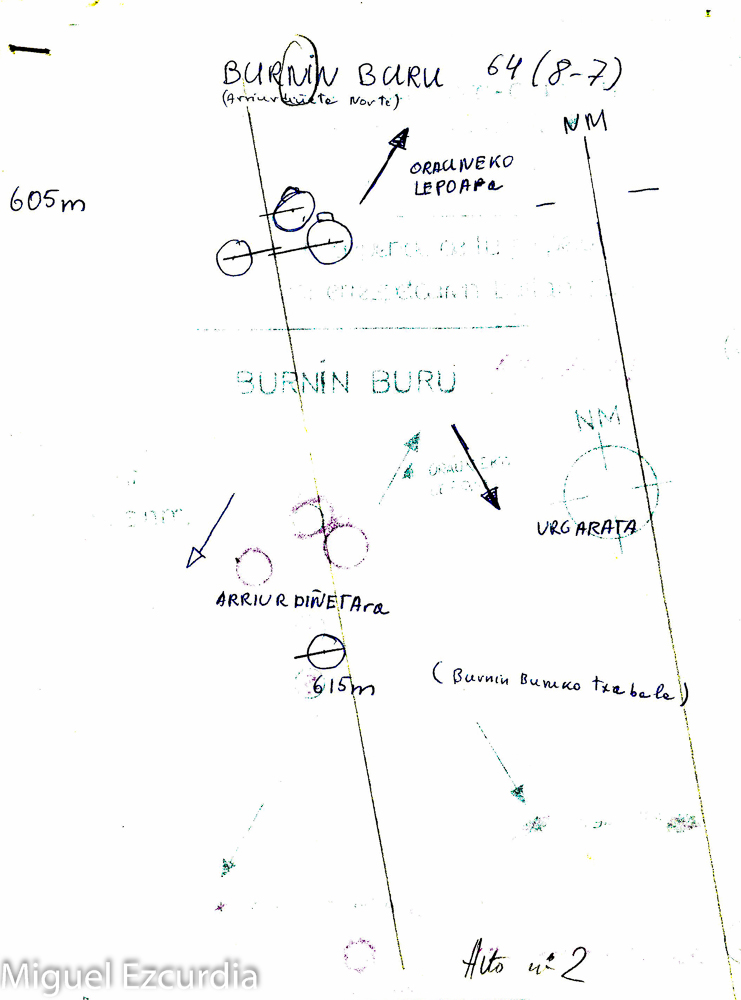 BURNIN BURU 64 (8-7)
(Arriurdiñeta Norte)
NM
ORAUNEKO
LEPOARA
605m
BURNIN BURU
NM
ORAUNEKO
URGARATA
ARRIURDIÑETARA
615m
(Burnin Buruko txabala)
Alto nº 2
Miguel Ezcurdia